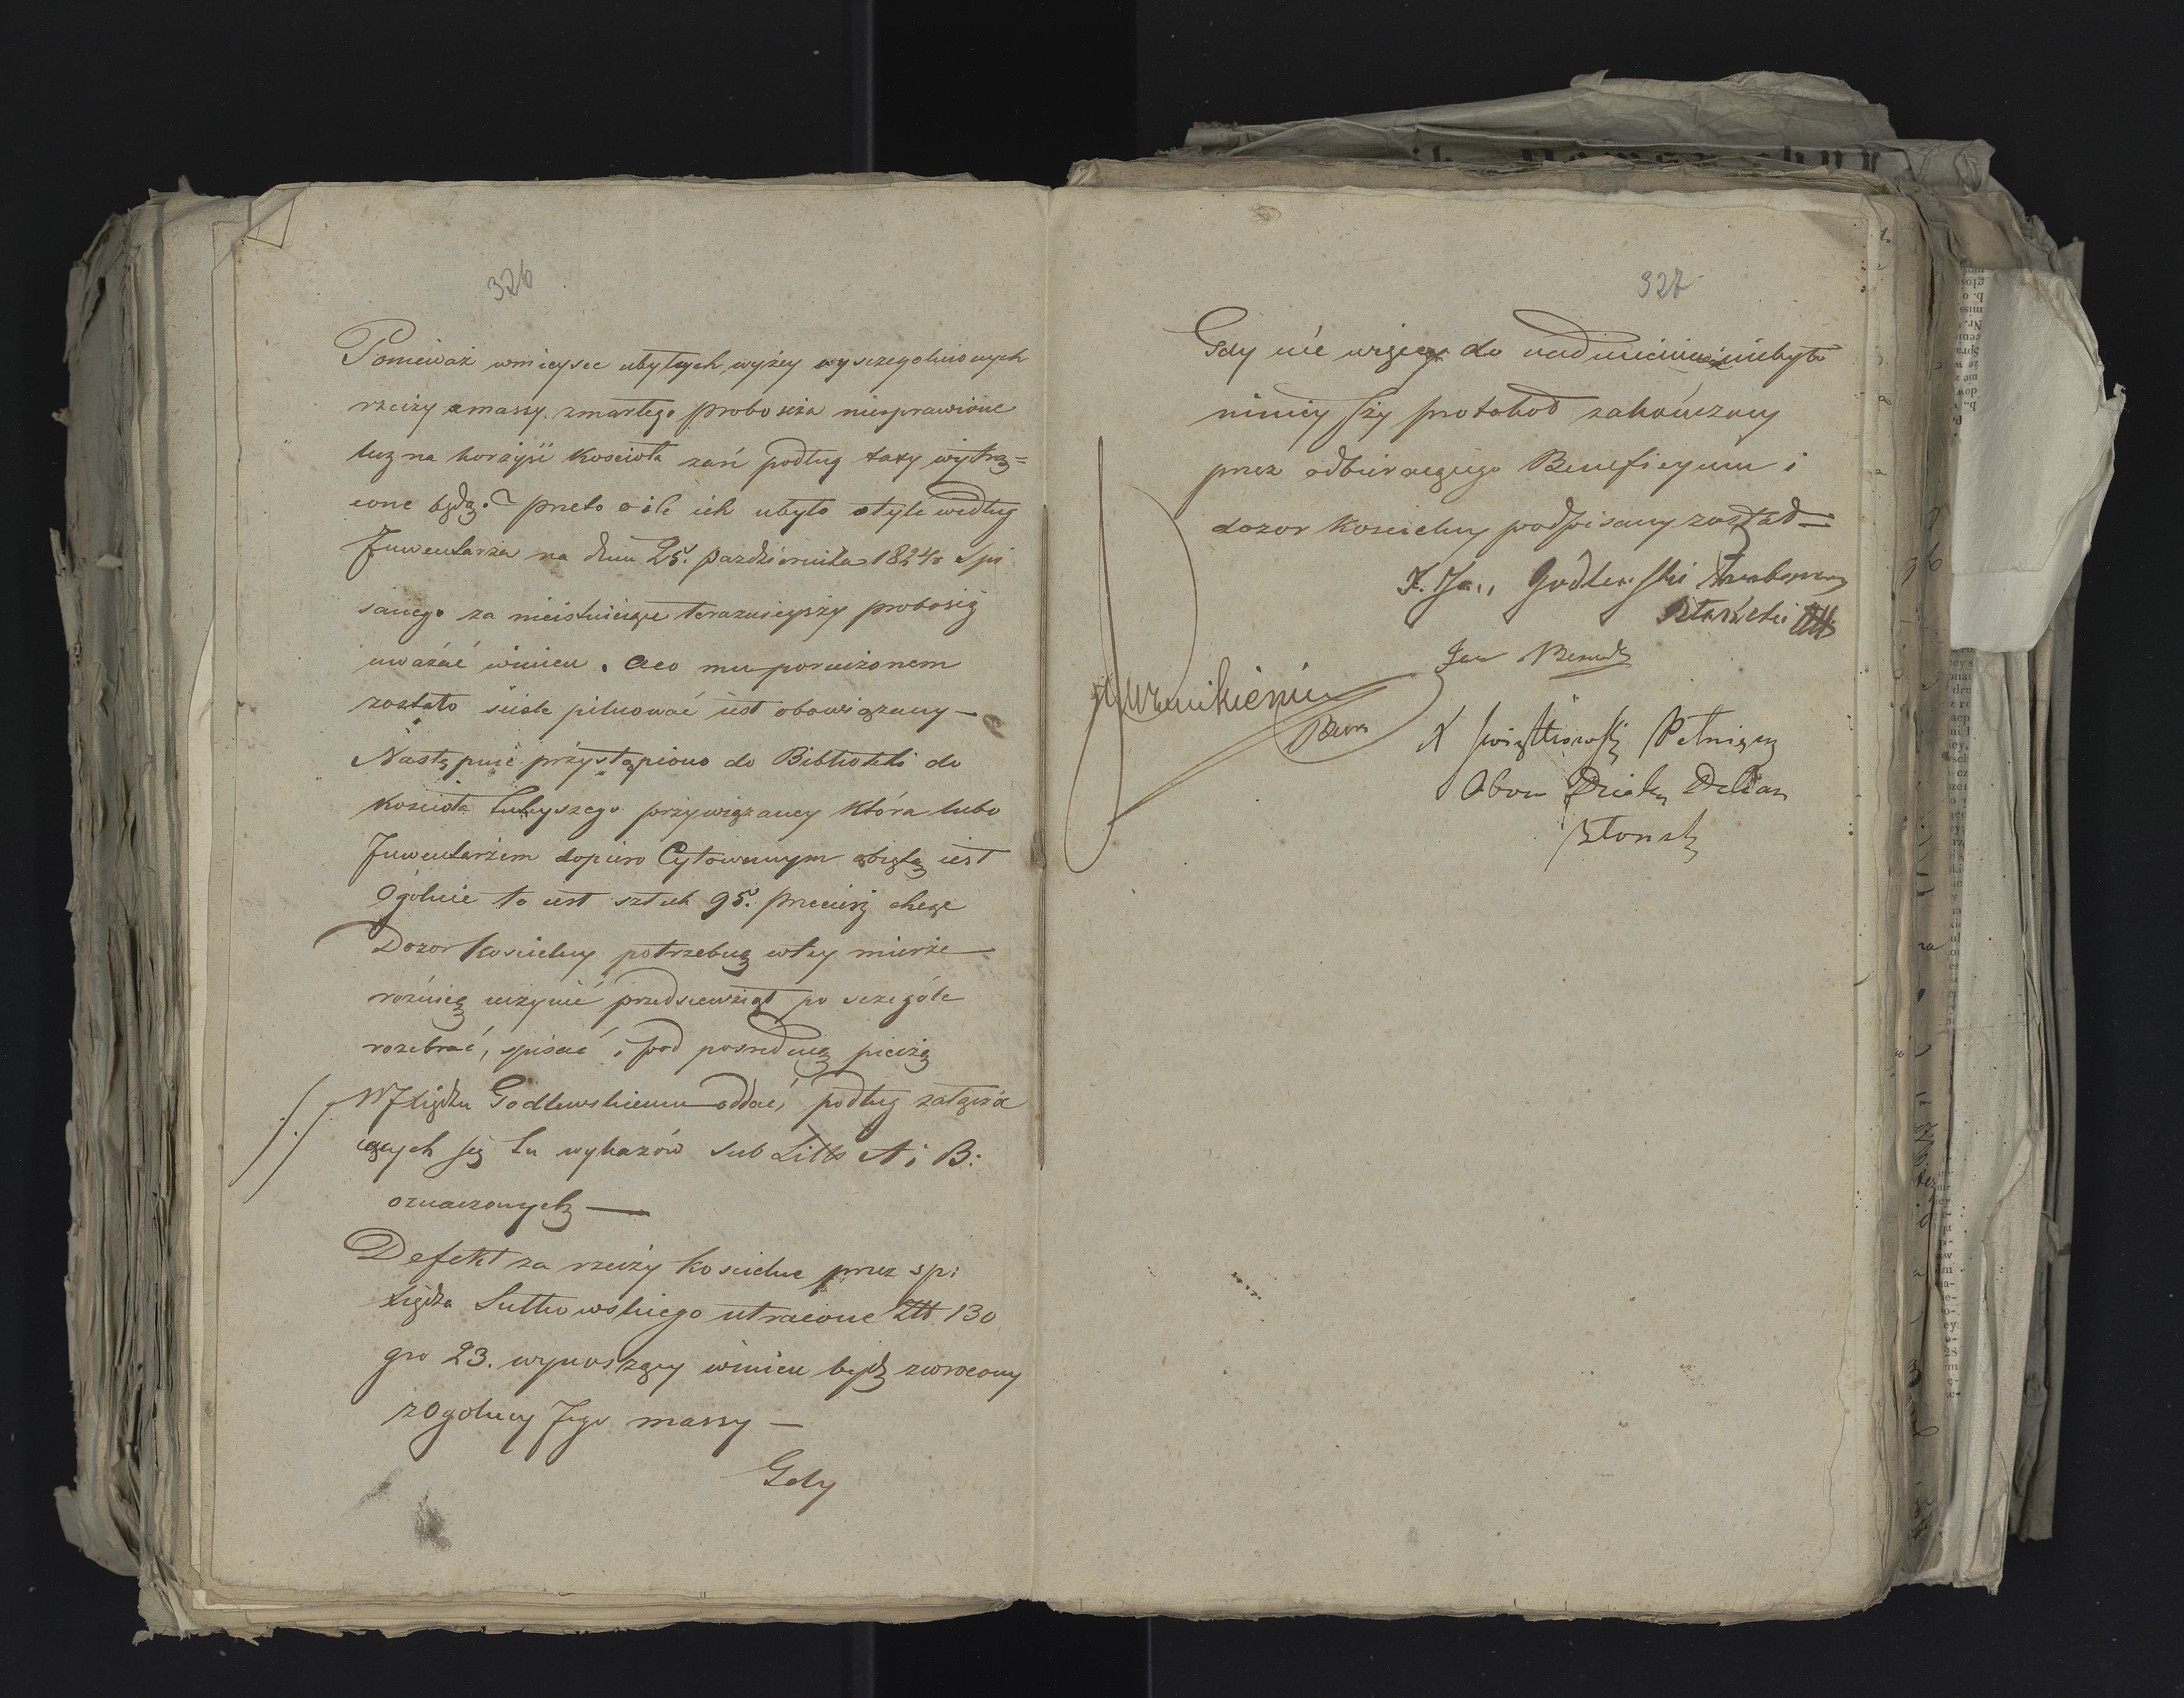 326
Ponieważ wmieysce ubytych, wyżey wyszczegolnionych
rzeczy z massy zmarłego proboszcza niesprawione
lecz na korzyść Kościoła zań podług taxy wytrą=
cone będą. Przeto o ile ich ubyło otyle według
Inwentarza na dniu 25. Października 1824 r Spi
sanego za nieistnieiące terazniejszy proboszcz
uważać winien. Aco mu poruczonem
zostało ściśle pilnować iest obowiązany —
Następnie przystąpiono do Biblioteki do
Kościoła tuteyszego przywiązaney która lubo
Inwentarzem dopiero Cytowanym obiętą iest
Ogólnie to iest sztuk 95. Przecież chcąc
Dozor Kościelny potrzebną wtey mierze
różnicę uczynić przedsiewziął po szczególe
rozebrać, spisać i pod posrednią pieczą
W Xiędzu Godlewskiemu oddać, podług załącza
iących się tu wykazów sub Litt A i B:
oznaczonych —
Defekt za rzeczy Kościelne przez sp:
Xiędza Sutkowskiego utracone Złł 130
gro 23. wynoszący winien bydź zwrócony
z Ogolney Jego massy —
Gdy
327
Gdy nic więcey do nadmienienia niebyło
nineyszy protokoł zakończony
przez odbieraiącego Beneficyum i
dozor Koscielny podpisany został —
X. Jan Godlewski Proboszcz
Błoński
Jan
X Swiątkowski Pełniący
Obow Dziek Dekan
Błonsk